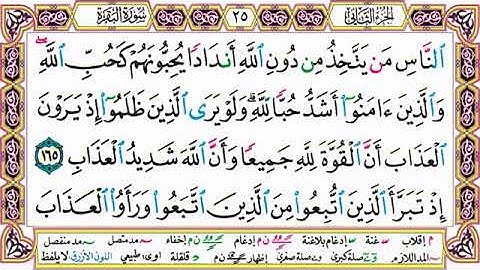 الجزء الثاني ٢٥ سورة البقرة
النَّاسِ مَن يَتَّخِذُ مِن دُونِ اللَّهِ أَندَادًا يُحِبُّونَهُمْ كَحُبِّ اللَّهِ ۖ
وَالَّذِينَ ءَامَنُوٓا۟ أَشَدُّ حُبًّا لِلَّهِ ۗ وَلَوْ يَرَى الَّذِينَ ظَلَمُوٓا۟ إِذْ يَرَوْنَ
الْعَذَابَ أَنَّ الْقُوَّةَ لِلَّهِ جَمِيعًا وَأَنَّ اللَّهَ شَدِيدُ الْعَذَابِ ١٦٥
إِذْ تَبَرَّأَ الَّذِينَ اتُّبِعُوا۟ مِنَ الَّذِينَ اتَّبَعُوا۟ وَرَأَوُا۟ الْعَذَابَ
م إقلاب غنة إدغام بلاغنة ن م إدغام ن م إخفاء مد متصل مد منفصل
المد اللازم صلة كبرى صلة صغرى ن م إظهار قلقلة أوى: طبيعي اللون الأزرق لا يلفظ